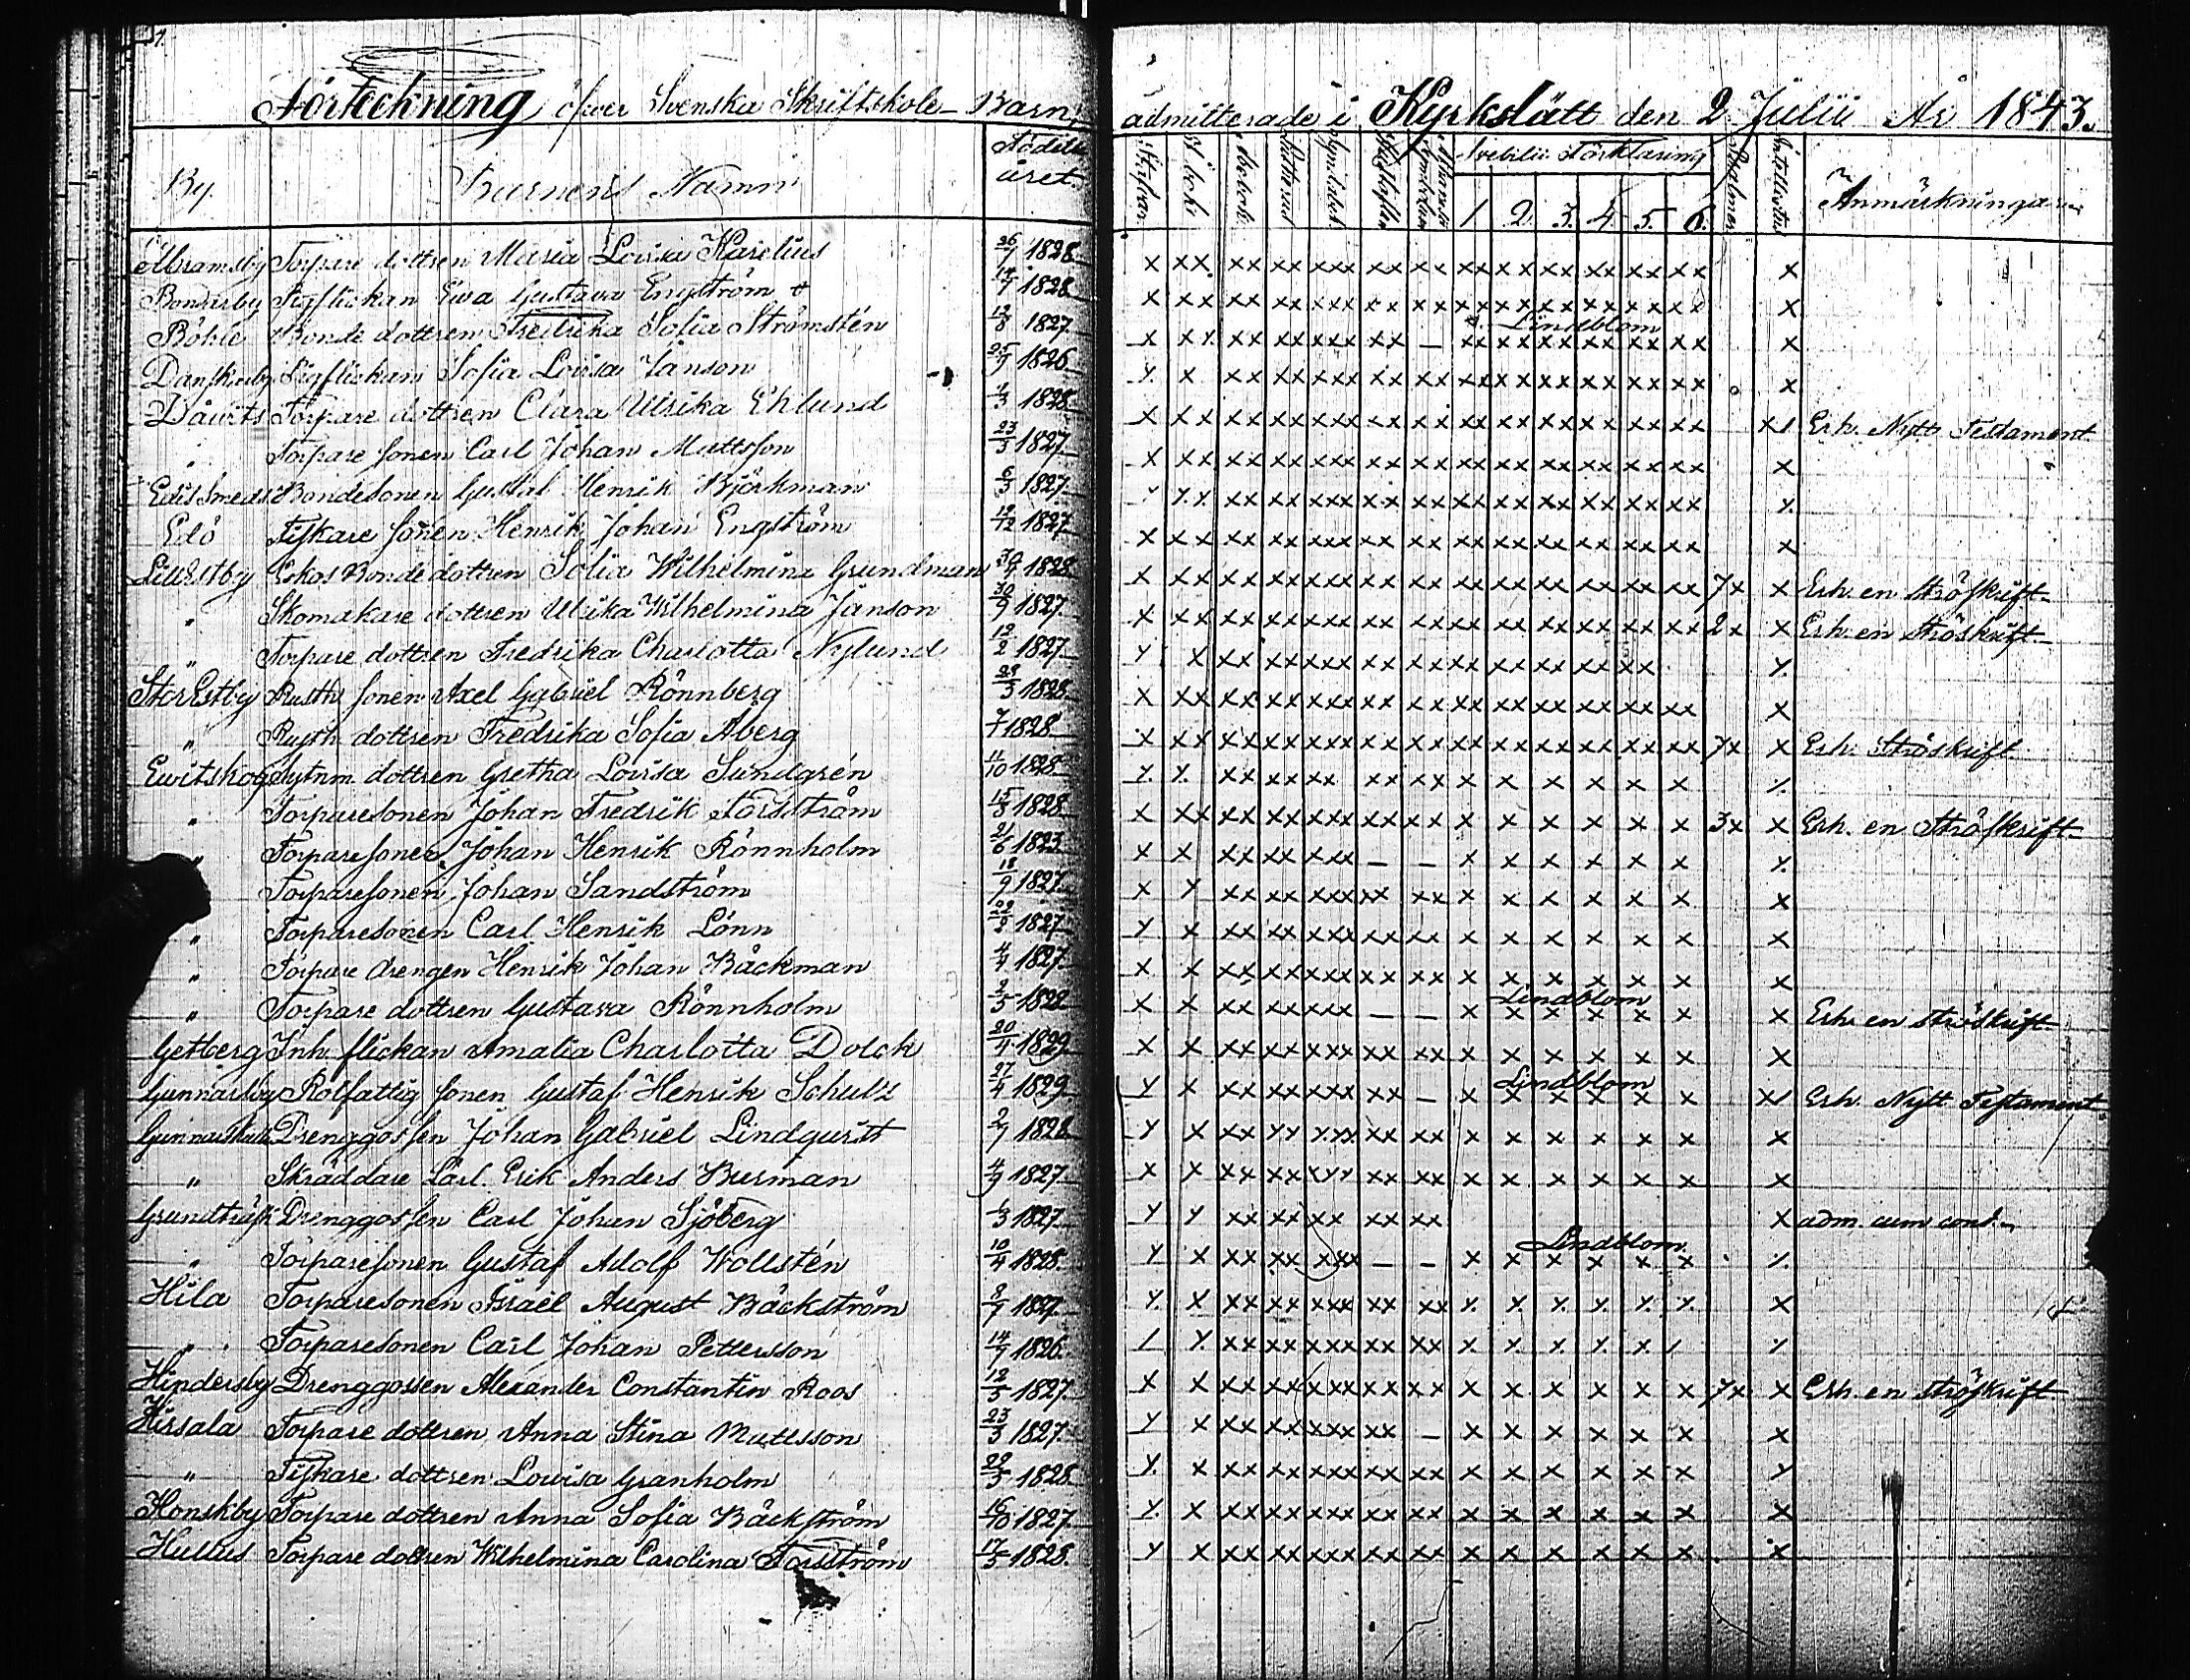 Förteckning öfver Svenska Skriftskole-Barn, admitterade i Kyrkslätt den 2 Julii År 1843.
By. Barnens Namn Födelse året. Svebilii Förklaring Psalmer Anmärkningar
1 2. 3. 4. 5. 6.
Abramsby Torpare dottren Maria Lovisa Karelius 26/4 1828 x xx xx xx xxx xx xx xx xx xx xx xx xx x
Bondarby Tigflickan Ewa Gustava Engström 14/7 1828 x xx xx xx xxx xx xx xx xx xx xx xx xx x
Böhle Bonde dottren Fredrika Sofia Strömsten 12/8 1827 x xx xx xx xxx xx — Lindblom xx xx xx xx xx xx x
Danskarby Tigflickan Sofia Lovisa Janson 25/9 1826 x x xx xx xxx xx xx xx xx xx xx xx xx x
Dåvits Torpare dottren Clara Ulrika Ehlund 1/3 1828 x xx xx xx xxx xx xx xx xx xx xx xx xx x/ Erh. Nytt Testament
" Torpare sonen Carl Johan Mattsson 23/3 1827 x xx xx xx xxx xx xx xx xx xx xx xx xx x
Edis Smeds Bondesonen Gustaf Henrik Björkman 6/3 1827 x xx xx xx xxx xx xx xx xx xx xx xx xx x
Edö Fiskare sonen Henrik Johan Engström 19/12 1827 x xx xx xx xxx xx xx xx xx xx xx xx xx x
LillEstby Enkas Bonde dottren Sofia Wilhelmina Grundman 1828 x xx xx xx xxx xx xx xx xx xx xx xx xx 7x x Erh. en Ströskrift
" Skomakare dottren Ulrika Wilhelmina Janson 30/9 1827 x xx xx xx xxx xx xx xx xx xx xx xx xx 2x x Erh. en Ströskrift
" Torpare dottren Fredrika Charlotta Nylund 12/2 1827 x x xx xx xxx xx xx xx xx xx xx xx x
StorEstby Rusth. sonen Axel Gabriel Rönnberg 29/3 1828 x xx xx xx xxx xx xx xx xx xx xx xx xx x
" Rusth. dottren Fredrika Sofia Åberg 1828 x xx xx xx xxx xx xx xx xx xx xx xx xx 7x x Erh. Ströskrift
Evitskog Sytnm. dottren Gretha Lovisa Sundgrén 11/10 1828 x x xx xx xx xx xx x x x x x x x
" Torparesonen Johan Fredrik Forsström 15/8 1828 x xx xx xx xxx xx xx x x x x x x 3x x Erh. en Ströskrift
" Torparesonen Johan Henrik Rönnholm 21/6 1823 x x xx xx xxx — — x x x x x x x
" Torparesonen Johan Sandström 18/9 1827 x x xx xx xxx xx xx x x x x x x x
" Torparesonen Carl Henrik Lönn 22/2 1827 x x xx xx xxx xx xx x x x x x x x
" Torpare drengen Henrik Johan Bäckman 4/4 1827 x x xx xx xxx xx xx x x x x x x x
" Torpare dottren Gustava Rönnholm 2/5 1828 x x xx xx xxx — — Lindblom x x x x x x x Erh. en ströskrift
Getberg Inh. flickan Amalia Charlotta Dolck 20/4 1829 x x xx xx xxx xx xx x x x x x x x
Gunnarsby Rotfattig sonen Gustaf Henrik Schultz 27/4 1829 x x xx xx xxx xx — Lindblom x x x x x x x/ Erh. Nytt Testament
Drenggossen Johan Gabriel Lindqvist 2/7 1828 x x xx xx xxx xx xx x x x x x x x
" Skräddare Lärl. Erik Anders Burman 4/9 1827 x x xx xx xxx xx xx x x x x x x x
Grundträsk Drenggossen Carl Johan Sjöberg 1/3 1827 x x xx xx xx xx xx x adm. cum cond.
" Torparesonen Gustaf Adolf Wollstén 10/4 1828 x x xx xx xxx — — Lindblom x x x x x x x
Hila Torparesonen Israel August Bäckström 8/7 1827 x x xx xx xxx xx xx x x x x x x x
" Torparesonen Carl Johan Pettersson 14/7 1826 / x xx xx xxx xx xx x x x x x / x
Hindersby Drenggossen Alexander Constantin Roos 12/5 1827 x x xx xx xxx xx xx x x x x x x 7x x Erh. en ströskrift
Hirsala Torpare dottren Anna Stina Mattsson 23/3 1827 x x xx xx xxx xx — x x x x x x x
" Fiskare dottren Lovisa Granholm 22/3 1828 x x xx xx xxx xx xx x x x x x x x
Honskby Torpare dottren Anna Sofia Bäckström 16/10 1827 x x xx xx xxx xx xx x x x x x x x
Hullus Torpare dottren Wilhelmina Carolina Forsström 17/5 1828 x x xx xx xxx xx xx x x x x x x x